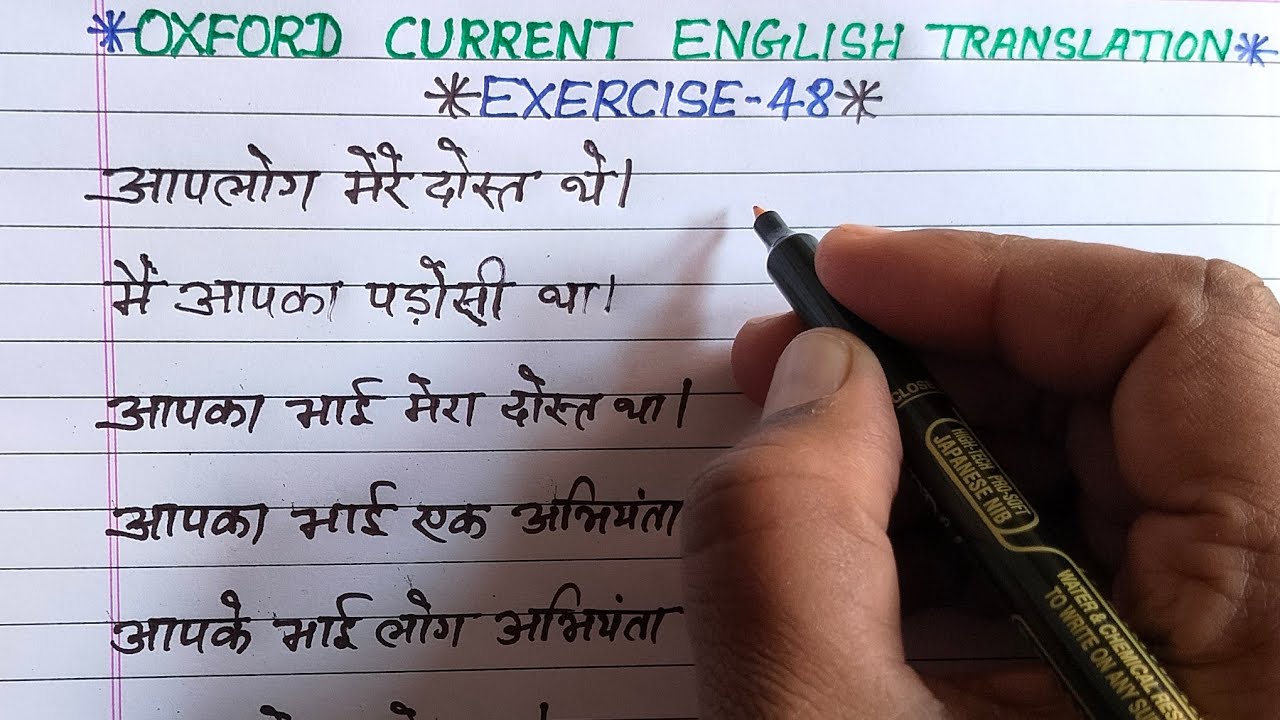 *OXFORD CURRENT ENGLISH TRANSLATION*
*EXERCISE-48*
आपलोग मेरे दोस्त थे।
मैं आपका पड़ोसी था।
आपका भाई मेरा दोस्त था।
आपका भाई एक अभियंता
आपके भाई लोग अभियंता
CLOSE
HIGH-TECH PRO-SOFT
JAPANESE NIB
WATER & CHEMICAL RES
TO WRITE ON ANY SU